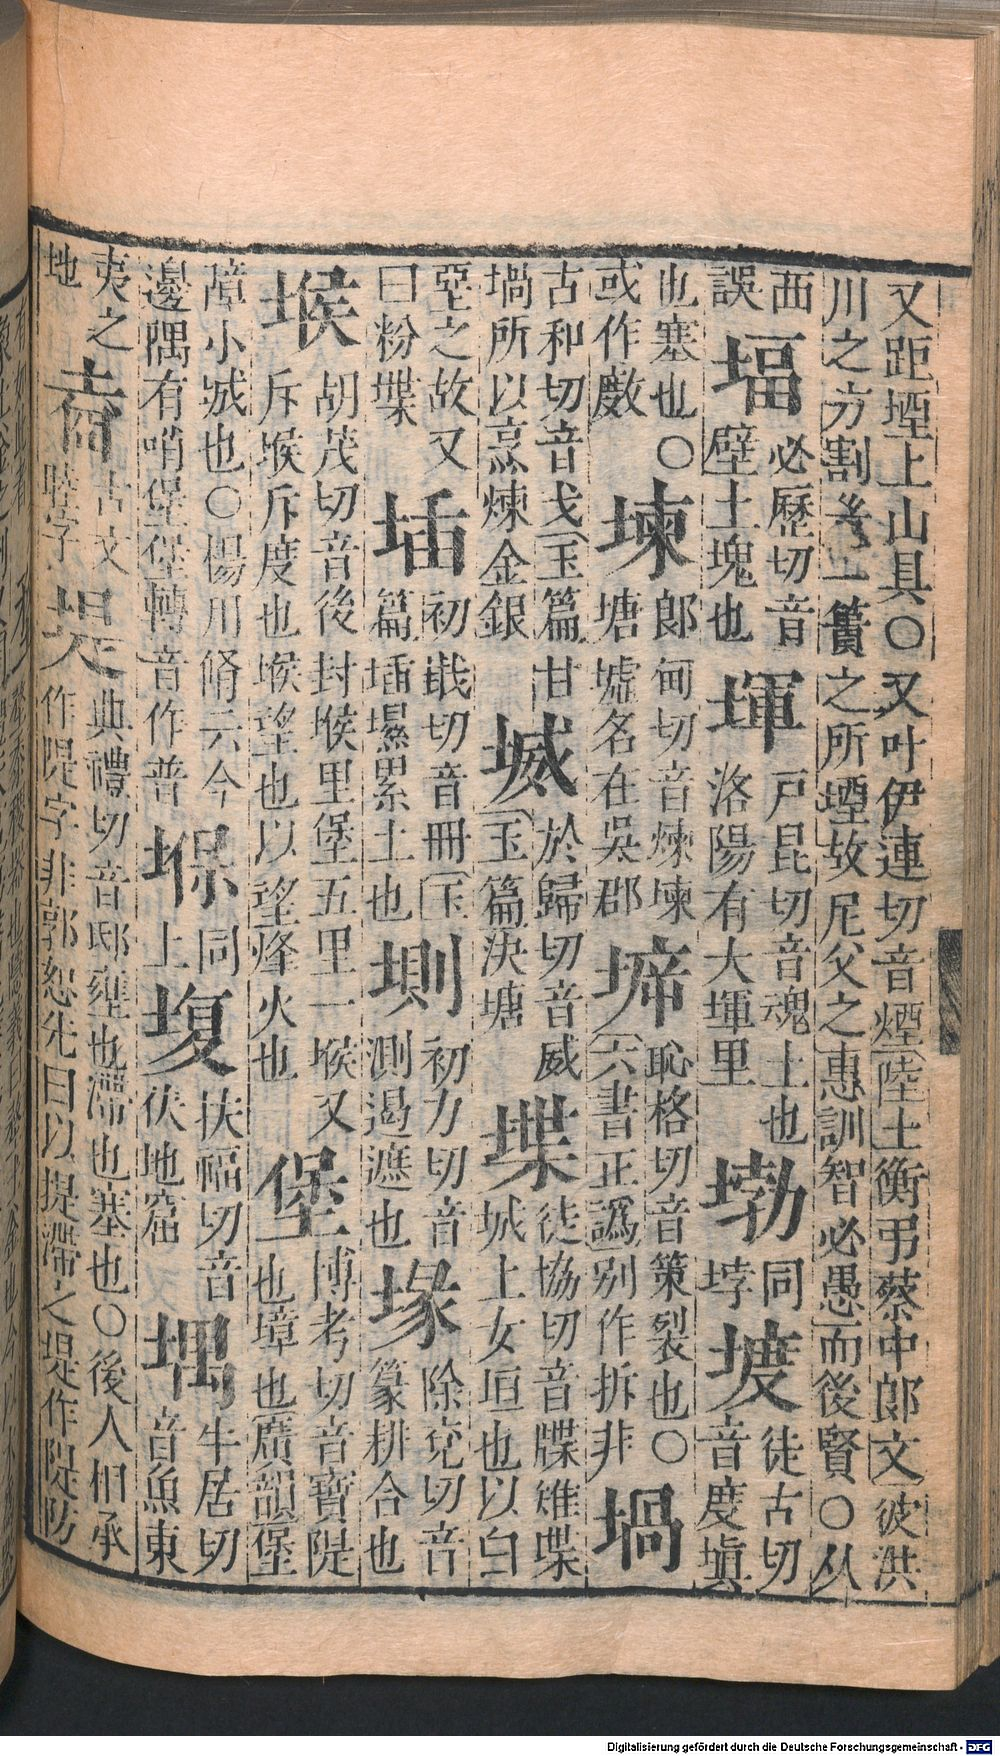 又距堙上山具○又叶伊連切音煙陸士衡弔蔡中郎文彼洪
川之方割豈一簣之所堙故尼父之惠訓智必愚而後賢○从
西誤堛必歷切音壁土塊也堚戸昆切音魂土也洛陽有大堚里 同 徒古切音度塡
也塞也○或作 堜郎甸切音煉堜塘墟名在吳郡 恥格切音策裂也○六書正譌別作拆非堝
古和切音戈玉篇甘堝所以烹煉金銀 於歸切音威玉篇決塘堞徒協切音牒雉堞城上女垣也以白
堊之故又曰粉堞 初戢切音冊玉篇 累土也 初力切音測遏遮也堟除兖切音篆耕合也
堠胡茂切音後封堠里堡五里一堠又斥堠斥度也堠望也以望烽火也堡博考切音寶隄也墇也廣韻堡
障小城也○楊用脩云今邊隅有哨堡堡轉音作普堢同上 扶福切音伏地窟堣牛居切音魚東
夷之地 古文陸字堤典禮切音邸壅也滯也塞也○後人相承作隄字非郭恕先曰以堤滯之堤作隄防
Digitalisierung gefördert durch die Deutsche Forschungsgemeinschaft - DFG